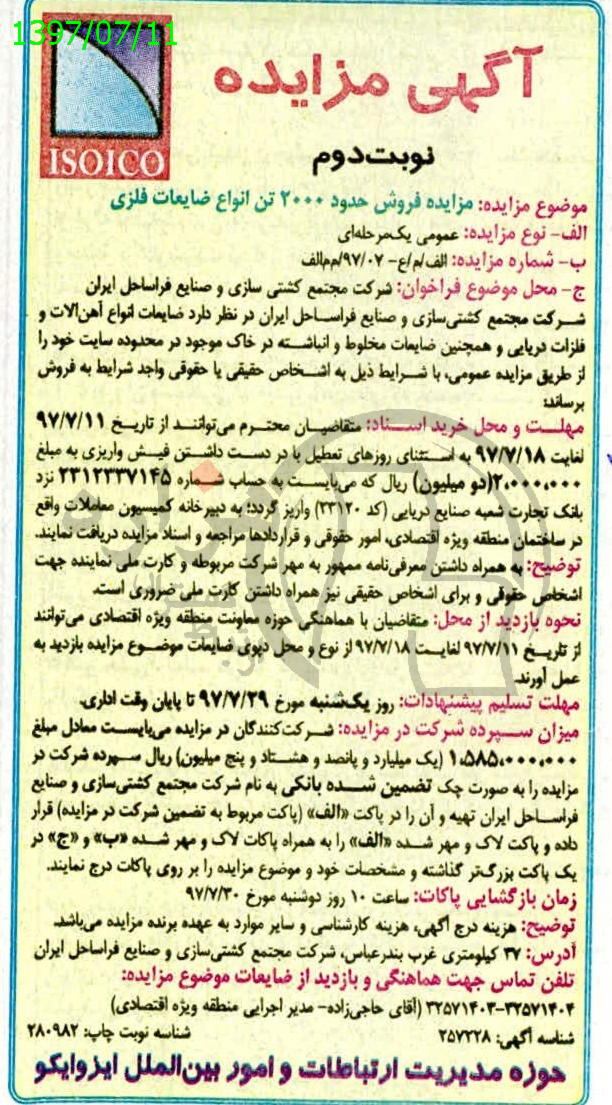 1397/07/11
آگهی مزایده
ISOICO
نوبت دوم
موضوع مزایده: مزایده فروش حدود ۲۰۰۰ تن انواع ضایعات فلزی
الف- نوع مزایده: عمومی یک‌مرحله‌ای
ب- شماره مزایده: الف/م/ع- ۹۷/۰۷/م‌م‌الف
ج- محل موضوع فراخوان: شرکت مجتمع کشتی سازی و صنایع فراساحل ایران
شرکت مجتمع کشتی‌سازی و صنایع فراساحل ایران در نظر دارد ضایعات انواع آهن‌آلات و
فلزات دریایی و همچنین ضایعات مخلوط و انباشته در خاک موجود در محدوده سایت خود را
از طریق مزایده عمومی، با شرایط ذیل به اشخاص حقیقی یا حقوقی واجد شرایط به فروش
برساند:
مهلت و محل خرید اسناد: متقاضیان محترم می‌توانند از تاریخ ۹۷/۷/۱۱
لغایت ۹۷/۷/۱۸ به استثنای روزهای تعطیل با در دست داشتن فیش واریزی به مبلغ
۲،۰۰۰،۰۰۰(دو میلیون) ریال که می‌بایست به حساب شماره ۲۳۱۲۳۳۷۱۴۵ نزد
بانک تجارت شعبه صنایع دریایی (کد ۲۳۱۲۰) واریز گردد؛ به دبیرخانه کمیسیون معاملات واقع
در ساختمان منطقه ویژه اقتصادی، امور حقوقی و قراردادها مراجعه و اسناد مزایده دریافت نمایند.
توضیح: به همراه داشتن معرفی‌نامه ممهور به مهر شرکت مربوطه و کارت ملی نماینده جهت
اشخاص حقوقی و برای اشخاص حقیقی نیز همراه داشتن کارت ملی ضروری است.
نحوه بازدید از محل: متقاضیان با هماهنگی حوزه معاونت منطقه ویژه اقتصادی می‌توانند
از تاریخ ۹۷/۷/۱۱ لغایت ۹۷/۷/۱۸ از نوع و محل دپوی ضایعات موضوع مزایده بازدید به
عمل آورند.
مهلت تسلیم پیشنهادات: روز یک‌شنبه مورخ ۹۷/۷/۲۹ تا پایان وقت اداری.
میزان سپرده شرکت در مزایده: شرکت‌کنندگان در مزایده می‌بایست معادل مبلغ
۱،۵۸۵،۰۰۰،۰۰۰ (یک میلیارد و پانصد و هشتاد و پنج میلیون) ریال سپرده شرکت در
مزایده را به صورت چک تضمین شده بانکی به نام شرکت مجتمع کشتی‌سازی و صنایع
فراساحل ایران تهیه و آن را در پاکت «الف» (پاکت مربوط به تضمین شرکت در مزایده) قرار
داده و پاکت لاک و مهر شده «الف» را به همراه پاکات لاک و مهر شده «ب» و «ج» در
یک پاکت بزرگ‌تر گذاشته و مشخصات خود و موضوع مزایده را بر روی پاکات درج نمایند.
زمان بازگشایی پاکات: ساعت ۱۰ روز دوشنبه مورخ ۹۷/۷/۳۰
توضیح: هزینه درج آگهی، هزینه کارشناسی و سایر موارد به عهده برنده مزایده می‌باشد.
آدرس: ۳۷ کیلومتری غرب بندرعباس، شرکت مجتمع کشتی‌سازی و صنایع فراساحل ایران
تلفن تماس جهت هماهنگی و بازدید از ضایعات موضوع مزایده:
۳۲۵۷۱۴۰۳-۳۲۵۷۱۴۰۴ (آقای حاجی‌زاده- مدیر اجرایی منطقه ویژه اقتصادی)
شناسه آگهی: ۲۵۷۲۲۸ شناسه نوبت چاپ: ۲۸۰۹۸۲
حوزه مدیریت ارتباطات و امور بین‌الملل ایزوایکو